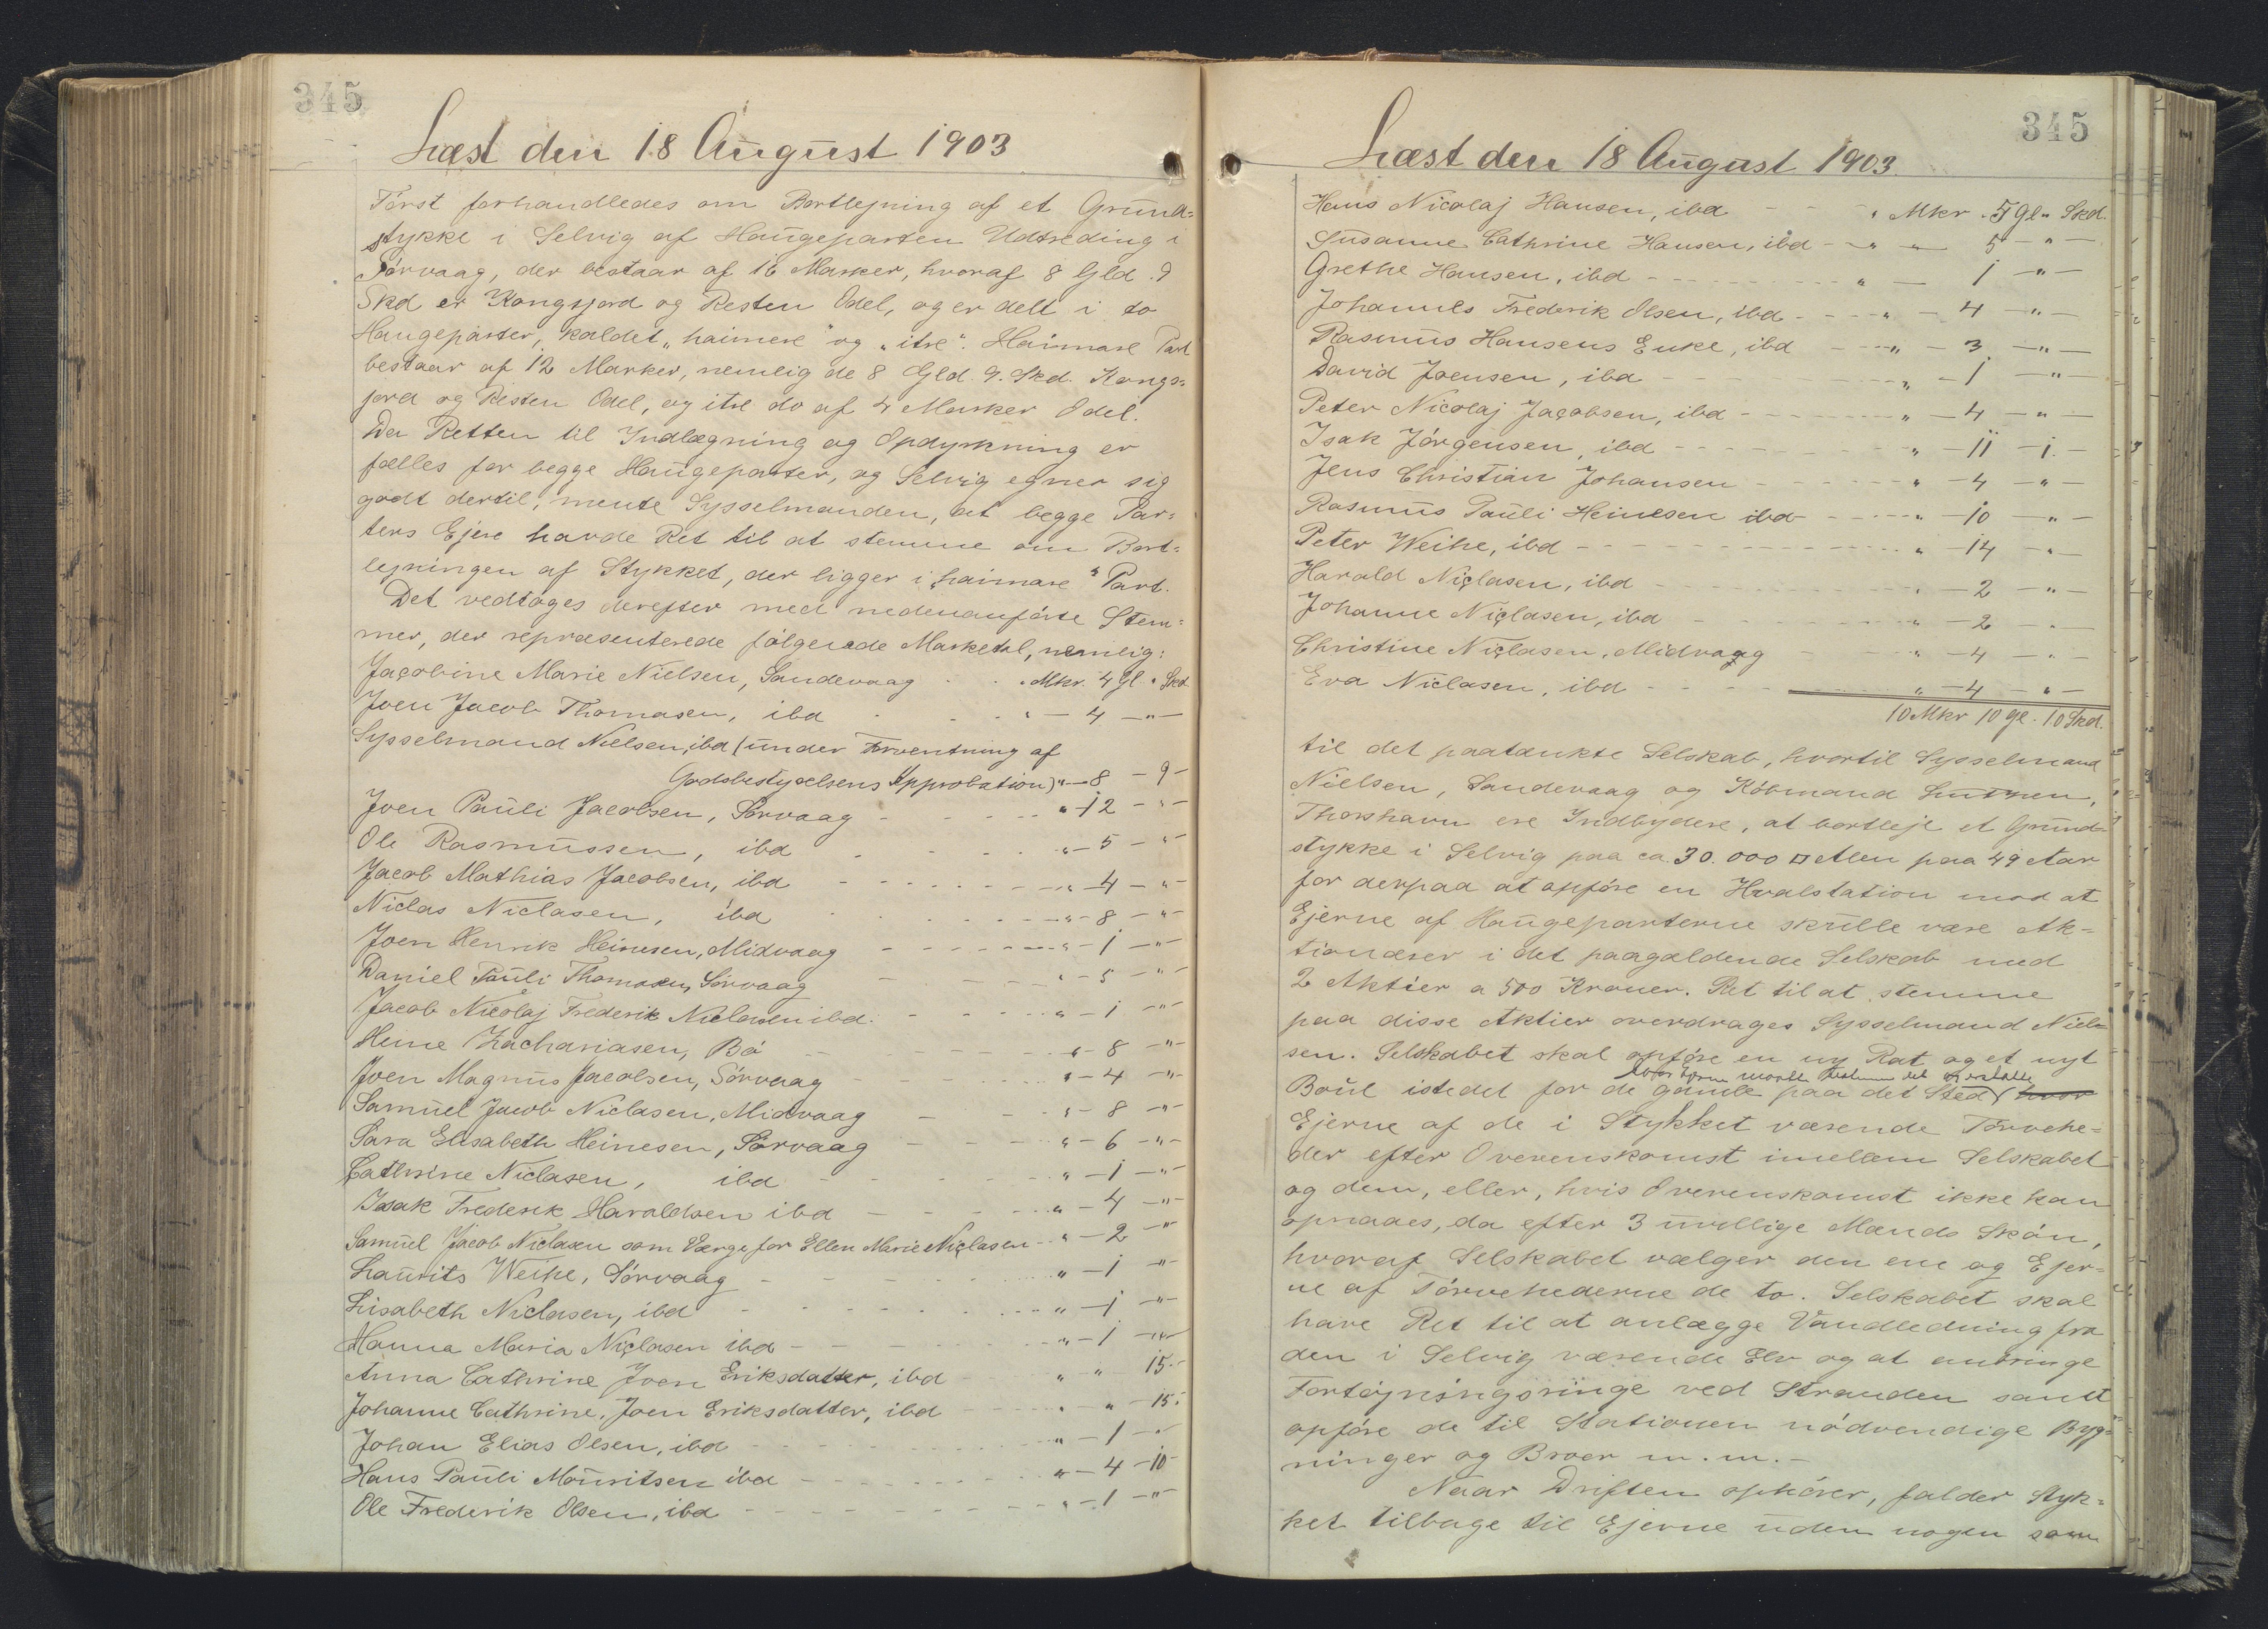 345
Læst den 18 August 1903
Først forhandledes om Bortlejning af et Grund=
stykke i Selvig af Haugeparten Udtreding i
Sørvaag, der bestaar af 16 Marker, hvoraf 8 Gld. 9
Skd er Kongsjord og Resten Odel, og er delt i to
Haugeparter, kaldet „haimere" og „itre". Haimare Part
bestaar af 12 Marker, nemlig de 8 Gld. 9. Skd. Kongs=
jord og Resten Odel, og itre do af 4 Marker Odel.
Da Retten til Indlægning og Opdyrkning er
fælles for begge Haugeparter, og Selvig egner sig
godt dertil, mente Sysselmanden, at begge Par=
ters Ejere havde Ret til at stemme om Bort=
lejningen af Stykket, der ligger i „haimare" Part.
Det vedtoges derefter med nedenanførte Stem=
mer, der repræsenterede følgende Marketal, nemlig:
Jacobine Marie Nielsen, Sandevaag - - " Mkr. 4 Gl. " Skd
Joen Jacob Thomasen, ibd - - - " — 4 — " —
Sysselmand Nielsen, ibd (under Forventning af
Godsbestyrelsens Approbation) " — 8 - 9 -
Joen Pauli Jacobsen, Sørvaag - - - " - 12 - " -
Ole Rasmussen, ibd - - - " - 5 - " -
Jacob Mathias Jacobsen, ibd - - - " - 4 - " -
Niclas Niclasen, ibd - - - " - 8 - " -
Joen Henrik Heinesen, Midvaag - - - " - 1 - " -
Daniel Pauli Thomasen, Sørvaag - - - " - 5 - " -
Jacob Nicolaj Frederik Niclasen ibd. - - - " - 1 - " -
Heine Zachariasen, Bø - - - " - 8 - " -
Joen Magnus Jacobsen, Sørvaag - - - " - 4 - " -
Samuel Jacob Niclasen, Midvaag - - - " - 8 - " -
Sara Elisabeth Heinesen, Sørvaag - - - " - 6 - " -
Cathrine Niclasen, ibd - - - " - 1 - " -
Isak Frederik Haraldsen ibd - - - " - 4 - " -
Samuel Jacob Niclasen som Værge for Ellen Marie Niclasen - " - 2 - " -
Laurits Weihe, Sørvaag - - - " - 1 - " -
Lisabeth Niclasen, ibd - - - " - 1 - " -
Hanna Maria Niclasen ibd - - - " - 1 - " -
Anna Cathrine Joen Eriksdatter, ibd - - " " 15 -
Johanne Cathrine, Joen Eriksdatter, ibd - - " " - 15 -
Johan Elias Olsen, ibd - - - " - 1 - " -
Hans Pauli Mouritsen ibd - - - " - 4 - 10 -
Ole Frederik Olsen, ibd - - - " - 1 - " -
345
Læst den 18 August 1903.
Hans Nicolaj Hansen, ibd - - - " Mkr. 5 Gl. " Skd.
Susanne Cathrine Hansen, ibd - " — 5 - " —
Grethe Hansen, ibd - - - " — 1 - " —
Johannes Frederik Olsen, ibd - - - " - 4 - " -
Rasmus Hansens Enke, ibd - - - " - 3 - " -
David Joensen, ibd - - - " - 1 - " -
Peter Nicolaj Jacobsen, ibd - - - " - 4 - " -
Isak Jørgensen, ibd - - - " - 11 - 1 -
Jens Christian Johansen - - - " - 4 - " -
Rasmus Pauli Heinesen ibd - - - " - 10 - " -
Peter Weihe, ibd - - - " - 14 - " -
Harald Niclasen, ibd - - - " - 2 - " -
Johanne Niclasen, ibd - - - " - 2 - " -
Christine Niclasen, Midvaag - - - " - 4 - " -
Eva Niclasen, ibd - - - " - 4 - " -
10 Mkr 10 Gl. 10 Skd.
til det paatænkte Selskab, hvortil Sysselmand
Nielsen, Sandevaag og Købmand Lützen,
Thorshavn ere Indbydere, at bortleje et Grund=
stykke i Selvig paa ca. 30.000 □ Alen paa 49 Aar
for derpaa at opføre en Hvalstation mod at
Ejerne af Haugeparterne skulle være Ak=
tionærer i det paagældende Selskab med
2 Aktier a 500 Kroner. Ret til at stemme
paa disse Aktier overdrages Sysselmand Niel=
sen. Selskabet skal opføre en ny Rat og et nyt
hvor Ejerne maatte det og erstatte
Boul istedet for de gamle paa det Sted hvor
Ejerne af de i Stykket værende Tørvehe=
der efter Overenskomst imellem Selskabet
og dem, eller, hvis Overenskomst ikke kan
opnaaes, da efter 3 uvillige Mænds Skøn,
hvoraf Selskabet vælger den ene og Ejer=
ne af Tørvehederne de to. Selskabet skal
have Ret til at anlægge Vandledning fra
den i Selvig værende Elv og at anbringe
Fortøjningsringe ved Stranden samt
opføre de til Stationen nødvendige Byg=
ninger og Broer m.m. -
Naar Driften ophører, falder Styk=
ket tilbage til Ejerne uden nogen som